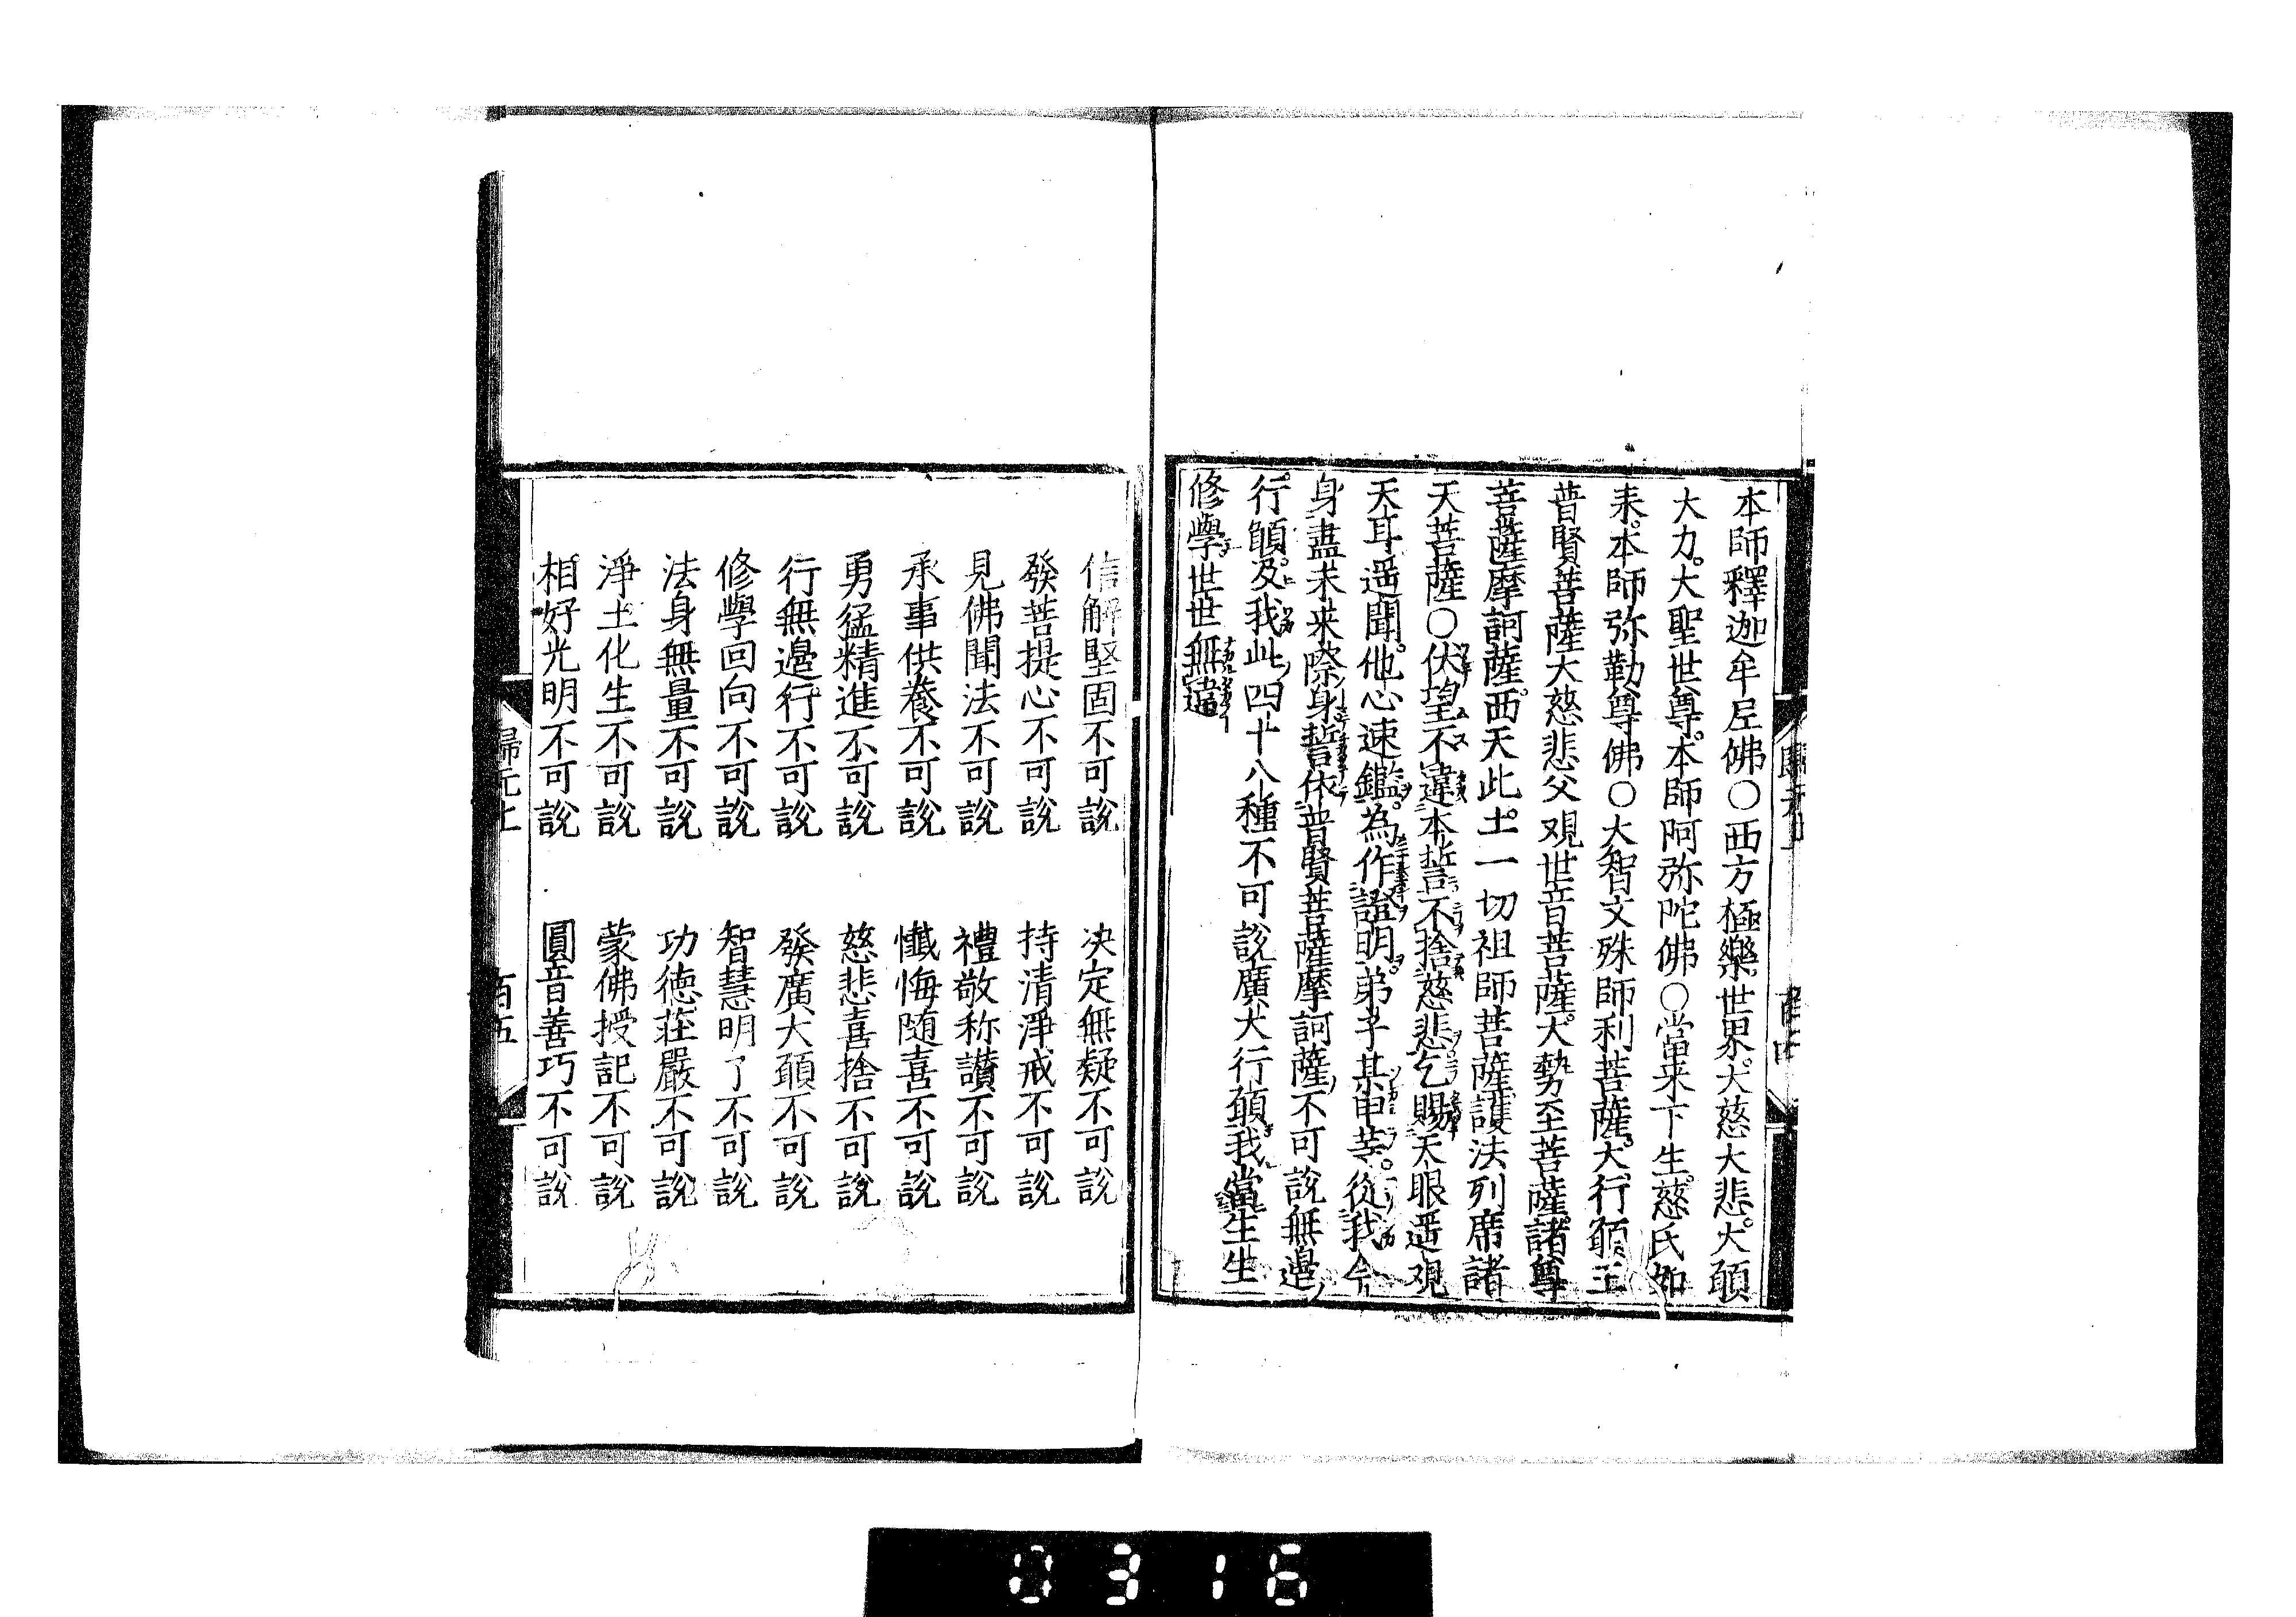 本師釋迦牟尼佛〇西方極樂世界。大慈大悲。大願
大力。大聖世尊。本師阿弥陀佛〇當来下生。慈氏如
来。本師弥勒尊佛〇大智文殊師利菩薩。大行願王
普賢菩薩大慈悲父观世音菩薩。大勢至菩薩。諸尊
菩薩摩訶薩。西天此土。一切祖師菩薩護法列席諸
天菩薩〇伏望不違本誓不捨慈悲乞賜天眼遥观
天耳遥聞。他心速鑑。為作證明。弟子某甲等。從我今
身盡未来際身誓依普賢菩薩摩訶薩不可說無邊
行願。及我此四十八種不可說廣大行願我當生生
修學世世無違
信解堅固不可說　决定無疑不可說
發菩提心不可說　持清淨戒不可說
見佛聞法不可說　禮敬称讃不可說
承事供養不可說　懺悔随喜不可說
勇猛精進不可說　慈悲喜捨不可說
行無邊行不可說　發廣大願不可說
修學回向不可說　智慧明了不可說
法身無量不可說　功德莊嚴不可說
淨土化生不可說　蒙佛授記不可說
相好光明不可說　圓音善巧不可說
歸元上　百五
0316